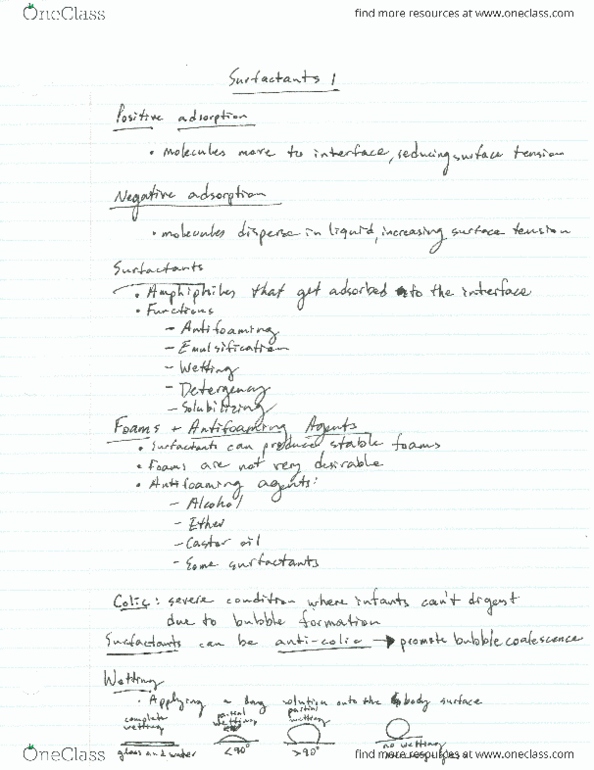 OneClass find more resources at www.oneclass.com
Surfactants 1
Positive adsorption
• molecules move to interface, reducing surface tension
Negative adsorption
• molecules disperse in liquid, increasing surface tension
Surfactants
• Amphiphiles that get adsorbed to the interface
• Functions
– Antifoaming
– Emulsification
– Wetting
– Detergency
– Solubilizing
Foams + Antifoaming Agents
• Surfactants can produce stable foams
• Foams are not very desirable
• Antifoaming agents:
– Alcohol
– Ether
– Castor oil
– Some surfactants
Colic: severe condition where infants can't digest
due to bubble formation
Surfactants can be anti-colic → promote bubble coalescence
Wetting
• Applying a drug solution onto the body surface
complete wetting partial wetting partial wetting
glass and water <90° >90° no wetting
OneClass find more resources at www.oneclass.com